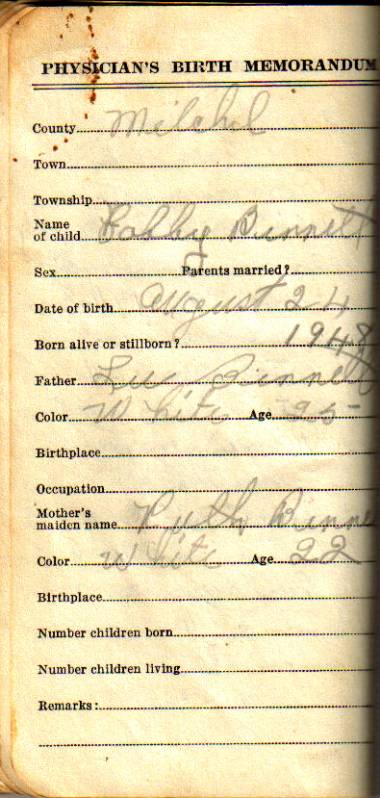 PHYSICIAN'S BIRTH MEMORANDUM
County Mitchel
Town
Township
Name
of child Bobby Bennett
Sex Parents married?
Date of birth August 24
Born alive or stillborn? 1948
Father Bennett
Color White Age 25
Birthplace
Occupation
Mother's
maiden name Ruth Benne
Color White Age 22
Birthplace
Number children born
Number children living
Remarks: